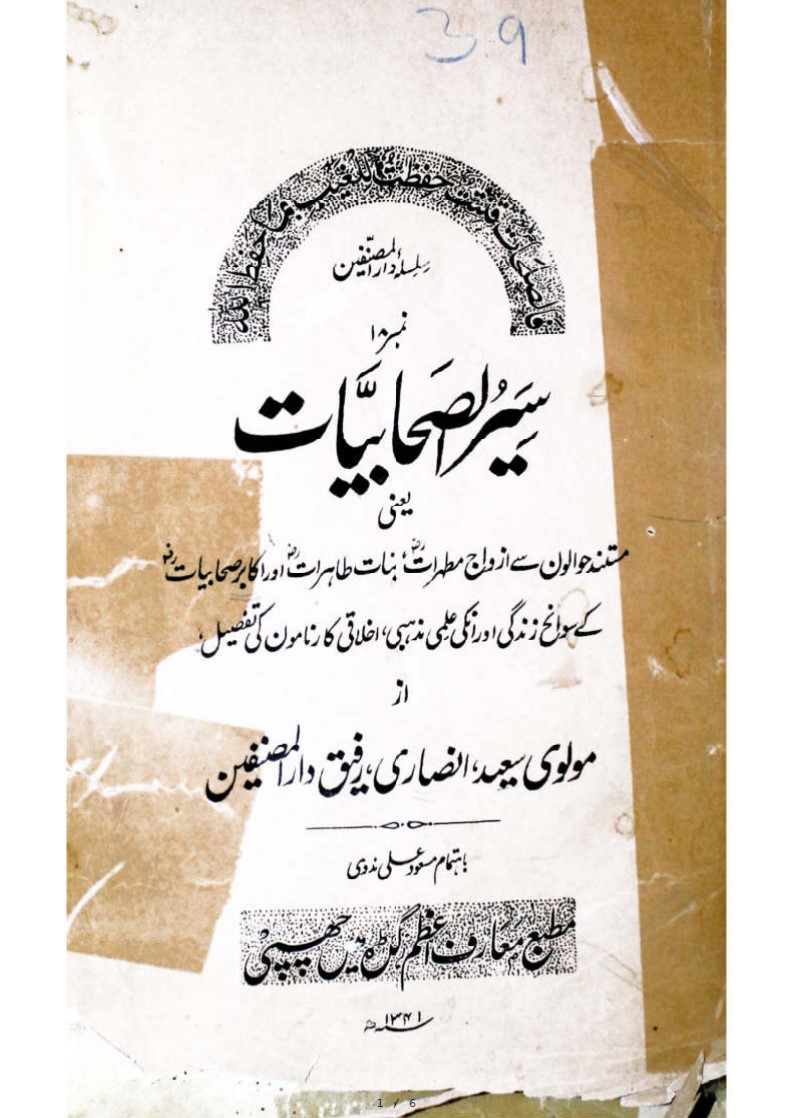 39
فالصلحت قنتت حفظت للغیب بما حفظ اللہ
سلسلۂ دار المصنّفین
نمبر ۱۸
سِیَرُ الصَحابیَّات
یعنی
مستند حوالون سے ازواج مطہراتؓ، بنات طاہراتؓ اور اکابر صحابیاتؓ
کے سوانح زندگی اور انکی علمی مذہبی، اخلاقی کارنامون کی تفصیل،
از
مولوی سعید، انصاری، رفیق دار المصنیفین
باہتمام مسعود علی ندوی
مطبع معارف اعظم گڑھ میں چھپی
۱۳۴۱ھ
1 / 6